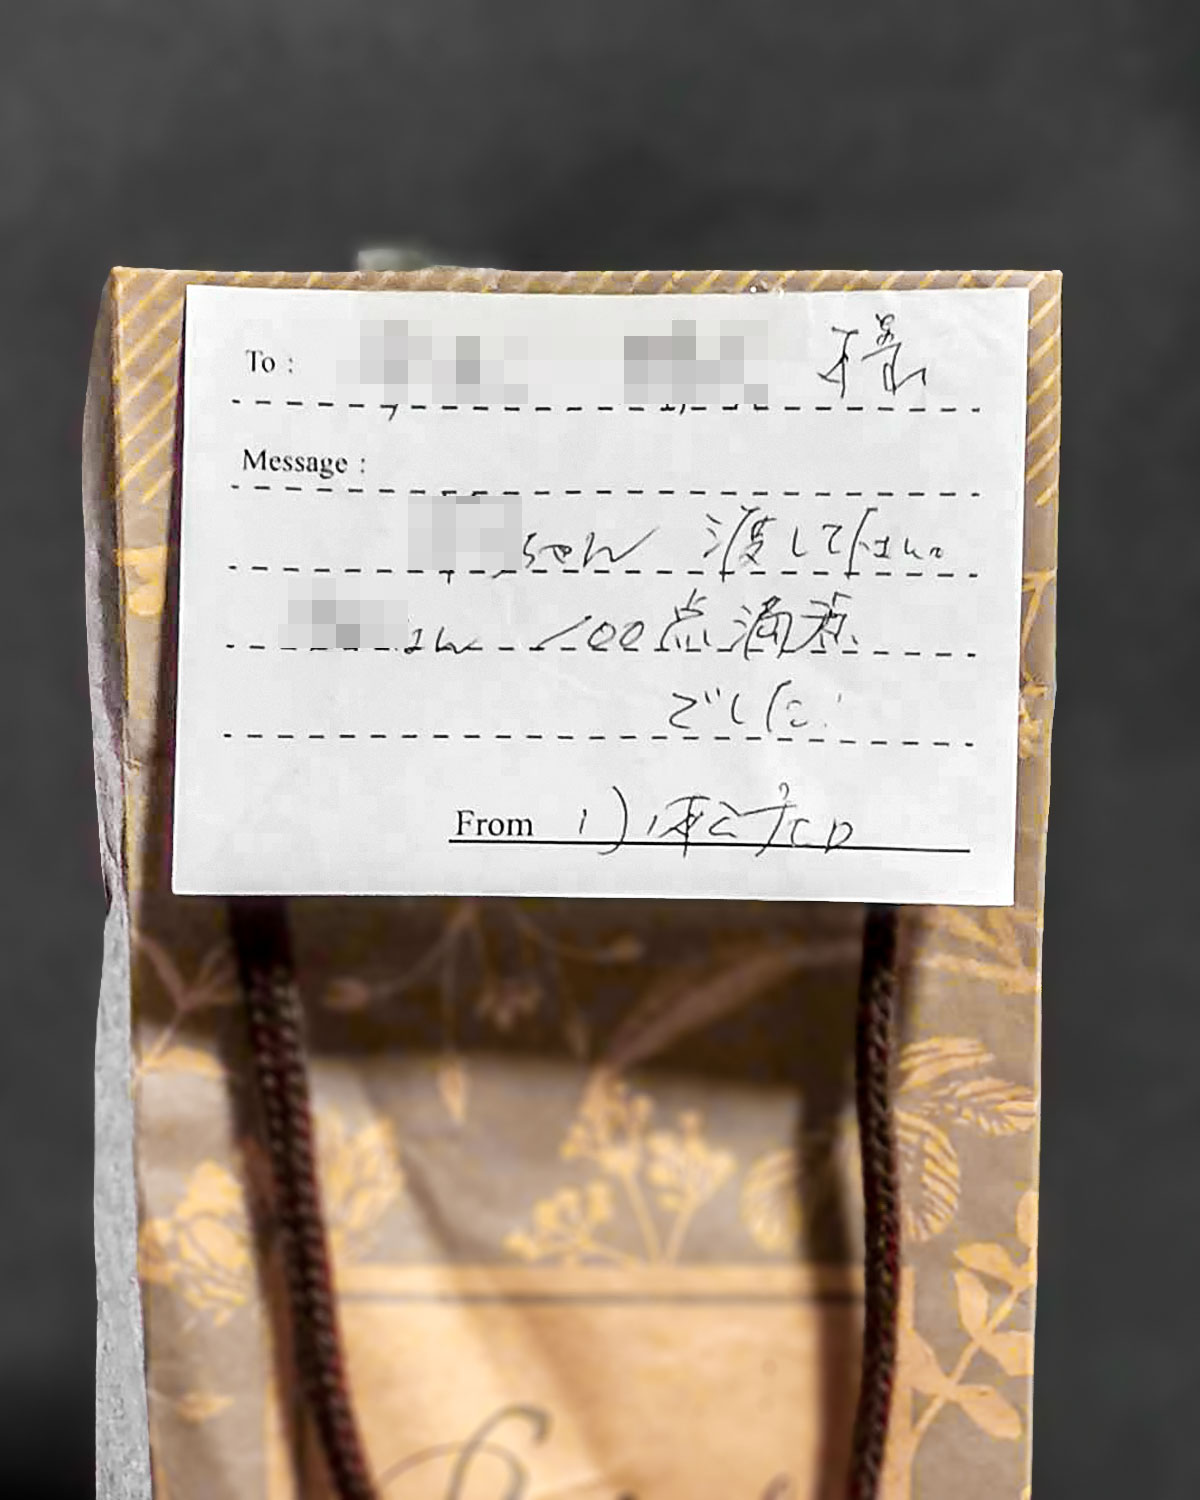 To : 様
Message :
ちゃん 渡して下さい
さん 100点満点
でした
From